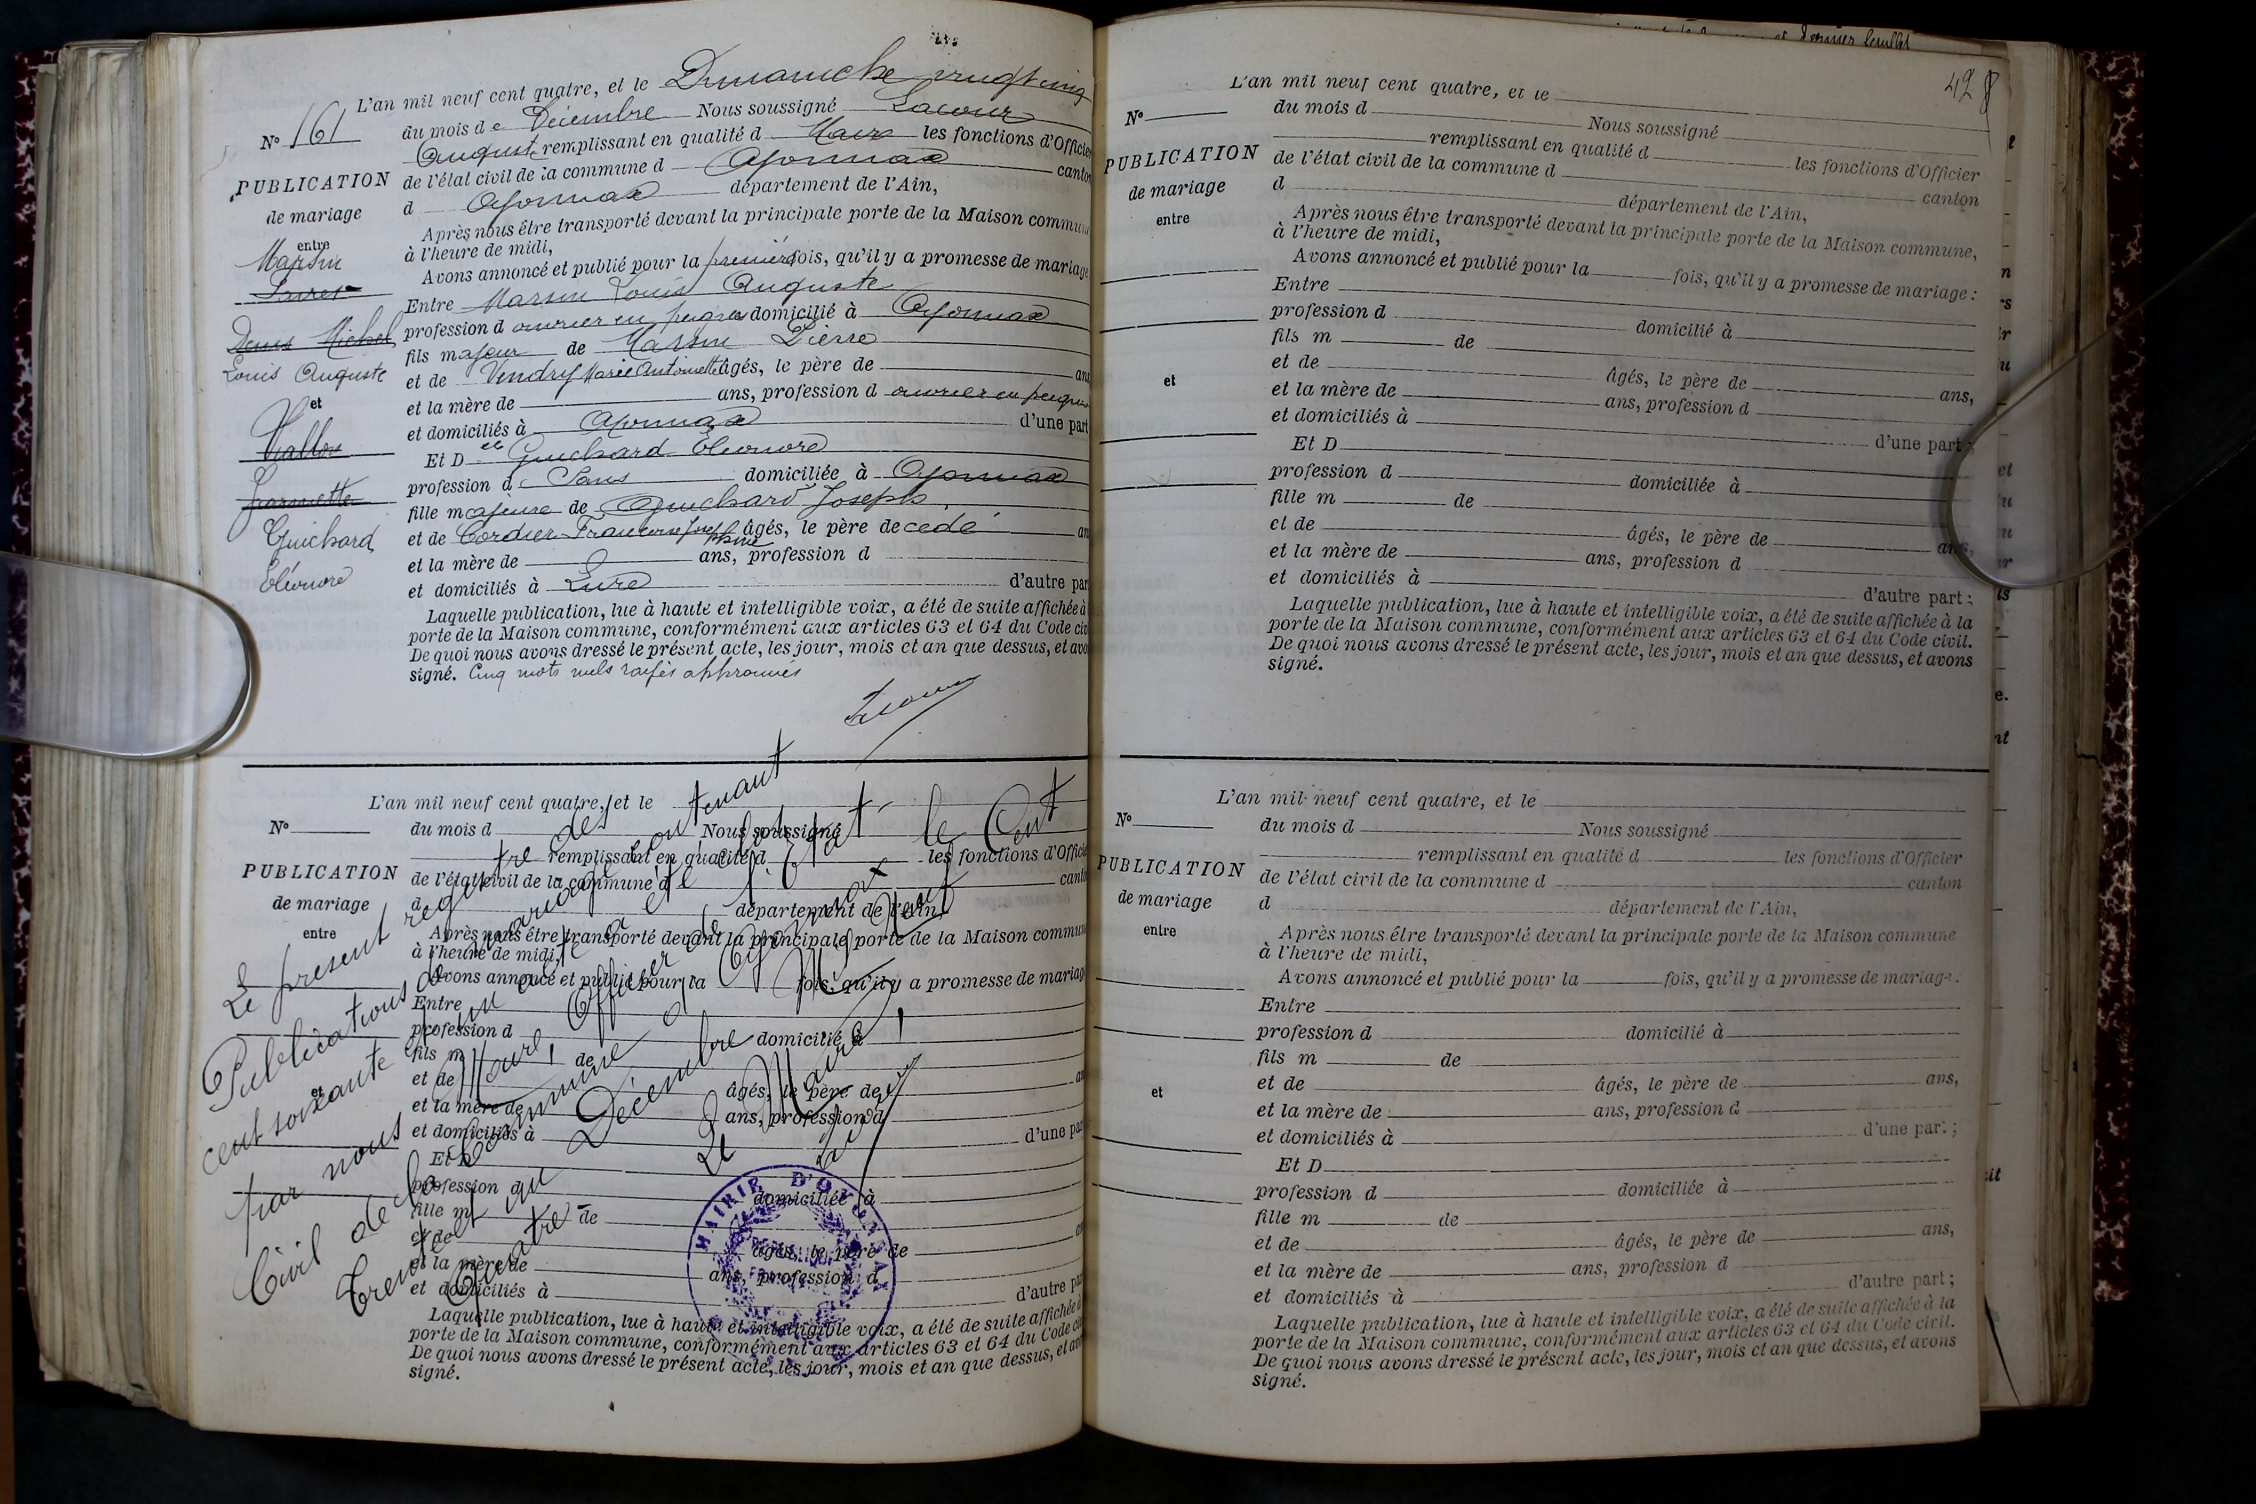 L'an mil neuf cent quatre, et le Dimanche vingt cinq
No 161
du mois de Décembre Nous soussigné Lacour
Auguste remplissant en qualité d Maire les fonctions d'Officier
PUBLICATION
de mariage
entre
de l'état civil de la commune d Oyonnax canton
d Oyonnax département de l'Ain,
Après nous être transporté devant la principale porte de la Maison commune
à l'heure de midi,
Avons annoncé et publié pour la première fois, qu'il y a promesse de mariage
Marsin
Denis Michel
Louis Auguste
et
Guichard
Eléonore
Entre Marsin Louis Auguste
profession d ouvrier en peignes domicilié à Oyonnax
fils majeur de Marsin Pierre
et de Vendry Marie Antoinette âgés, le père de ans
et la mère de ans, profession d ouvrier en peignes
et domiciliés à Oyonnax d'une part
Et Delle Guichard Eléonore
profession d Sans domiciliée à Oyonnax
fille majeure de Guichard Joseph
et de Cordier Françoise Joséphine âgés, le père de cédé ans
et la mère de ans, profession d
et domiciliés à Lure d'autre part
Laquelle publication, lue à haute et intelligible voix, a été de suite affichée à
porte de la Maison commune, conformément aux articles 63 et 64 du Code civ
De quoi nous avons dressé le présent acte, les jour, mois et an que dessus, et avo
signé. Cinq mots nuls rayés approuvés
Lacour
L'an mil neuf cent quatre, et le
No
du mois d Nous soussigné
remplissant en qualité d les fonctions d'Officie
PUBLICATION
de mariage
entre
et
de l'état civil de la commune d canto
d département de l'Ain,
Après nous être transporté devant la principale porte de la Maison commun
à l'heure de midi,
Avons annoncé et publié pour la fois, qu'il y a promesse de mariag
Entre
profession d domicilié à
fils m de
et de âgés, le père de an
et la mère de ans, profession d
et domiciliés à d'une par
Et D
profession d domiciliée à
fille m de
et de âgés, le père de
et la mère de ans, profession d
et domiciliés à d'autre par
Laquelle publication, lue à haute et intelligible voix, a été de suite affichée à
porte de la Maison commune, conformément aux articles 63 et 64 du Code civ
De quoi nous avons dressé le présent acte, les jour, mois et an que dessus, et av
signé.
Le présent registre des
Publications de mariage contenant
cent soixante un acte a été clos et
par nous Maire, Officier de l'Etat
Civil de la Commune d'Oyonnax le
Trente et un Décembre Mil Neuf Cent
Quatre
Le Maire,
MAIRIE D'OYONNAX
428
L'an mil neuf cent quatre, et le
No
du mois d Nous soussigné
remplissant en qualité d les fonctions d'Officier
PUBLICATION
de mariage
entre
et
de l'état civil de la commune d canton
d département de l'Ain,
Après nous être transporté devant la principale porte de la Maison commune,
à l'heure de midi,
Avons annoncé et publié pour la fois, qu'il y a promesse de mariage :
Entre
profession d domicilié à
fils m de
et de âgés, le père de ans,
et la mère de ans, profession d
et domiciliés à d'une part ;
Et D
profession d domiciliée à
fille m de
et de âgés, le père de ans,
et la mère de ans, profession d
et domiciliés à d'autre part ;
Laquelle publication, lue à haute et intelligible voix, a été de suite affichée à la
porte de la Maison commune, conformément aux articles 63 et 64 du Code civil.
De quoi nous avons dressé le présent acte, les jour, mois et an que dessus, et avons
signé.
L'an mil neuf cent quatre, et le
No
du mois d Nous soussigné
remplissant en qualité d les fonctions d'Officier
PUBLICATION
de mariage
entre
et
de l'état civil de la commune d canton
d département de l'Ain,
Après nous être transporté devant la principale porte de la Maison commune
à l'heure de midi,
Avons annoncé et publié pour la fois, qu'il y a promesse de mariage.
Entre
profession d domicilié à
fils m de
et de âgés, le père de ans,
et la mère de ans, profession d
et domiciliés à d'une part ;
Et D
profession d domiciliée à
fille m de
et de âgés, le père de ans,
et la mère de ans, profession d
et domiciliés à d'autre part ;
Laquelle publication, lue à haute et intelligible voix, a été de suite affichée à la
porte de la Maison commune, conformément aux articles 63 et 64 du Code civil.
De quoi nous avons dressé le présent acte, les jour, mois et an que dessus, et avons
signé.